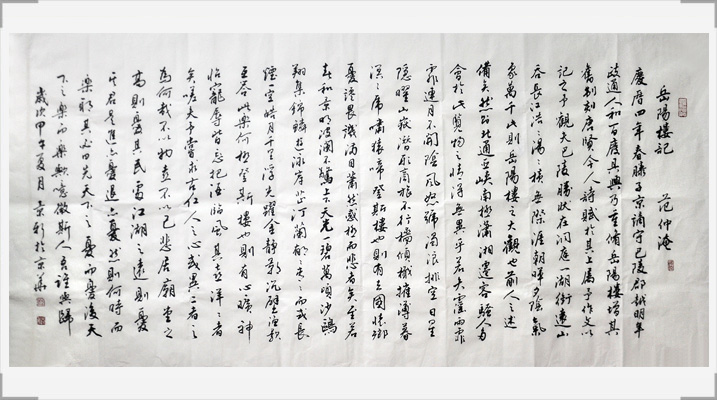 岳陽樓記 范仲淹
慶曆四年春滕子京謫守巴陵郡越明年
政通人和百廢具興乃重修岳陽樓增其
舊制刻唐賢今人詩賦於其上屬予作文以
記之予觀夫巴陵勝狀在洞庭一湖銜遠山
吞長江浩浩湯湯橫無際涯朝暉夕陰氣
象萬千此則岳陽樓之大觀也前人之述
備矣然則北通巫峽南極瀟湘遷客騷人多
會於此覽物之情得無異乎若夫霪雨霏
霏連月不開陰風怒號濁浪排空日星
隱曜山嶽潛形商旅不行檣傾楫摧薄暮
冥冥虎嘯猿啼登斯樓也則有去國懷鄉
憂讒畏譏滿目蕭然感極而悲者矣至若
春和景明波瀾不驚上下天光碧萬頃沙鷗
翔集錦鱗游泳岸芷汀蘭郁郁青青而或長
煙一空皓月千里浮光耀金靜影沉璧漁歌
互答此樂何極登斯樓也則有心曠神
怡寵辱皆忘把酒臨風其喜洋洋者
矣嗟夫予嘗求古仁人之心或異二者之
為何哉不以物喜不以己悲居廟堂之
高則憂其民處江湖之遠則憂
其君是進亦憂退亦憂然則何時而
樂耶其必曰先天下之憂而憂後天
下之樂而樂歟噫微斯人吾誰與歸
歲次甲午夏月 於京華